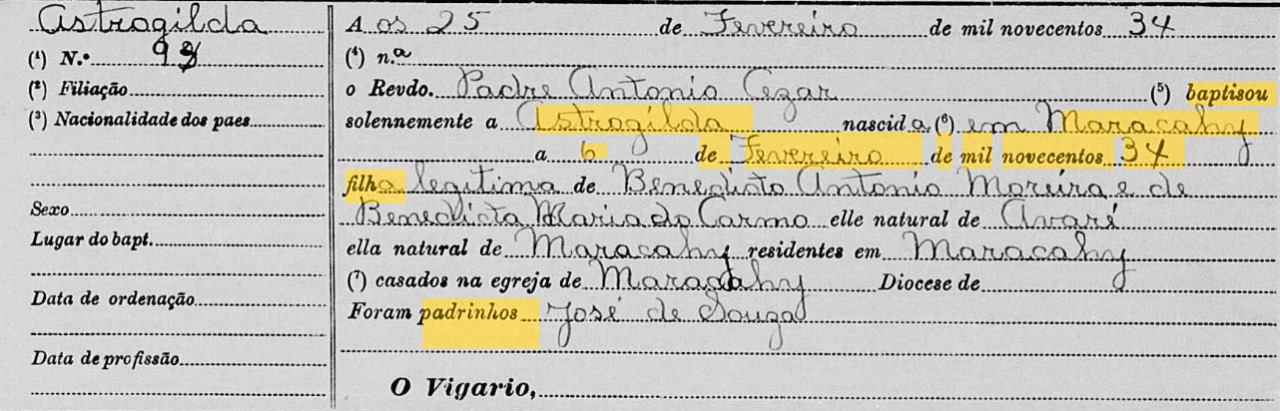 Astrogilda
(¹) N.º 98
(²) Filiação
(³) Nacionalidade dos paes
Sexo
Lugar do bapt.
Data de ordenação
Data de profissão
Aos 25 de Fevereiro de mil novecentos 34
(⁴) n.ª
o Revdo. Padre Antonio Cezar (⁵) baptisou
solennemente a Astrogilda nascida (⁶) em Maracahy
a 6 de Fevereiro de mil novecentos 34
filha legitima de Benedicto Antonio Moreira e de
Benedicta Maria do Carmo elle natural de Avaré
ella natural de Maracahy residentes em Maracahy
(⁷) casados na egreja de Maracahy Diocese de
Foram padrinhos José de Souza
O Vigario,